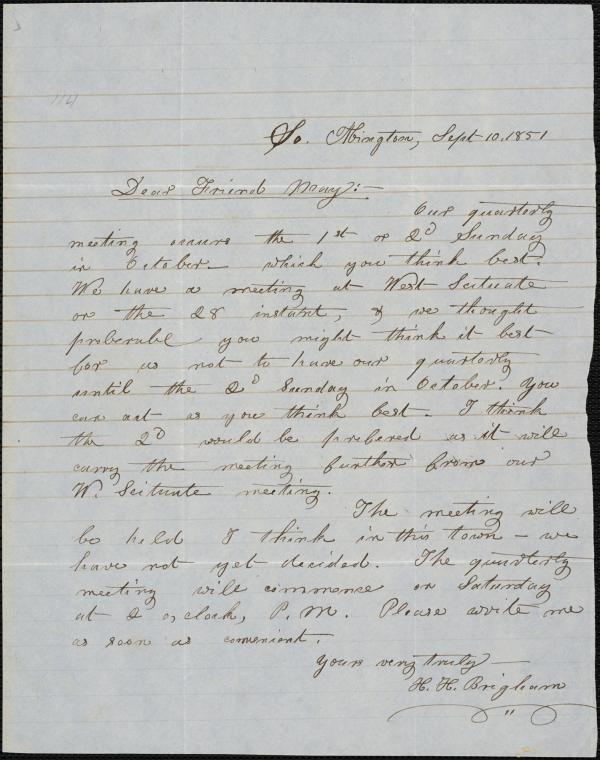 So. Abington, Sept 10. 1851
Dear Friend May:—
Our quarterly
meeting occurs the 1st or 2d Sunday
in October— which you think best.
We have a meeting at West Scituate
on the 28 instant, & we thought
preberable you might think it best
for us not to have our quarterly
until the 2d Sunday in October. You
can act as you think best. I think
the 2d would be prefered as it will
carry the meeting further from our
W. Scituate meeting.
The meeting will
be held I think in this town — we
have not yet decided. The quarterly
meeting will commence on Saturday
at 2 o,clock, P.M. Please write me
as soon as convenient.
Yours very truly—
H. H. Brigham